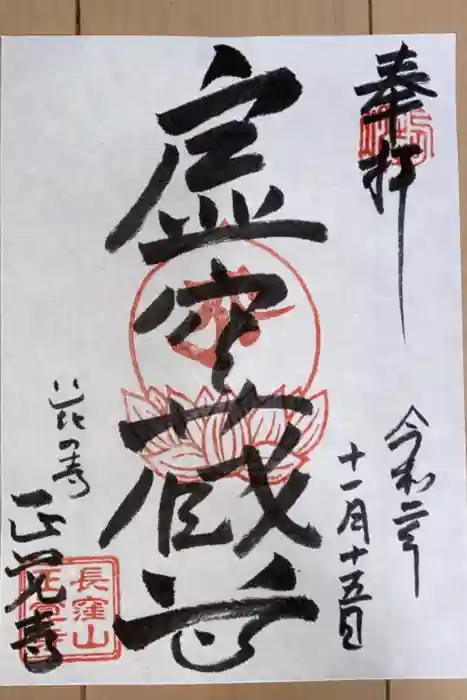 奉拝
令和二年
十一月十五日
虚空蔵
花の寺
正覚寺
長窪山
正覚寺